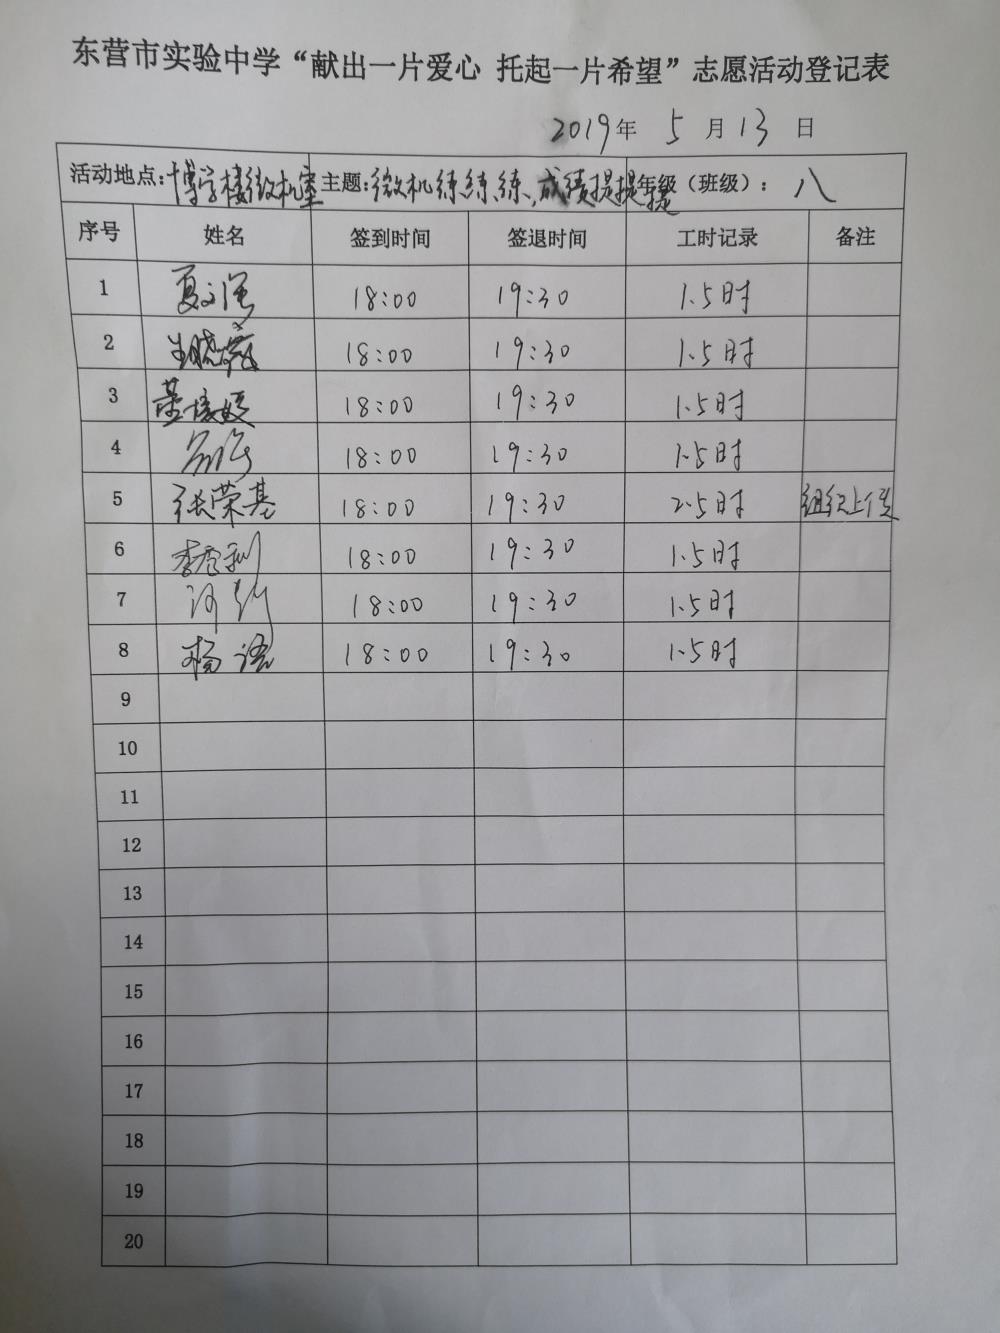 东营市实验中学“献出一片爱心 托起一片希望”志愿活动登记表
2019年 5 月 13 日
活动地点：博学楼微机室 主题：微机练练练，成绩提提提 年级（班级）： 八
序号 姓名 签到时间 签退时间 工时记录 备注
1 18:00 19:30 1.5时
2 18:00 19:30 1.5时
3 18:00 19:30 1.5时
4 18:00 19:30 1.5时
5 张荣基 18:00 19:30 2.5时 组织上传
6 18:00 19:30 1.5时
7 18:00 19:30 1.5时
8 杨 18:00 19:30 1.5时
9
10
11
12
13
14
15
16
17
18
19
20